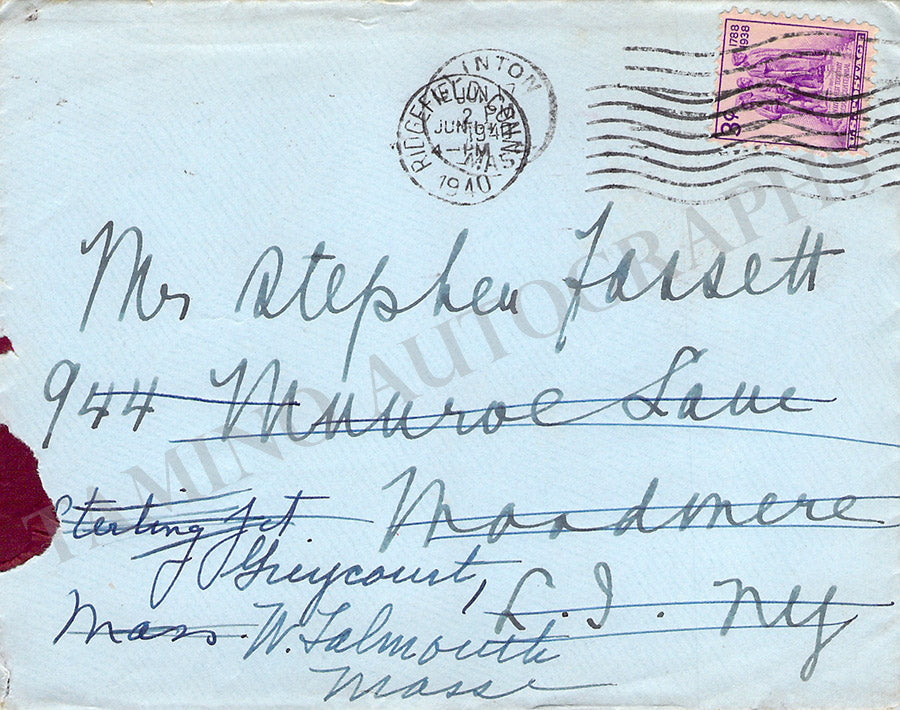 INTON
RIDGEFIELD CONN.
JUN
2 P
1940
4-PM
MASS
1940
1788
1938
3¢
Mr Stephen Fassett
944 Munroe Lane
Woodmere
L.I. NY
Sterling Jct
Mass.
Greycourt,
W. Falmouth
Masse
TAMINO AUTOGRAPHS